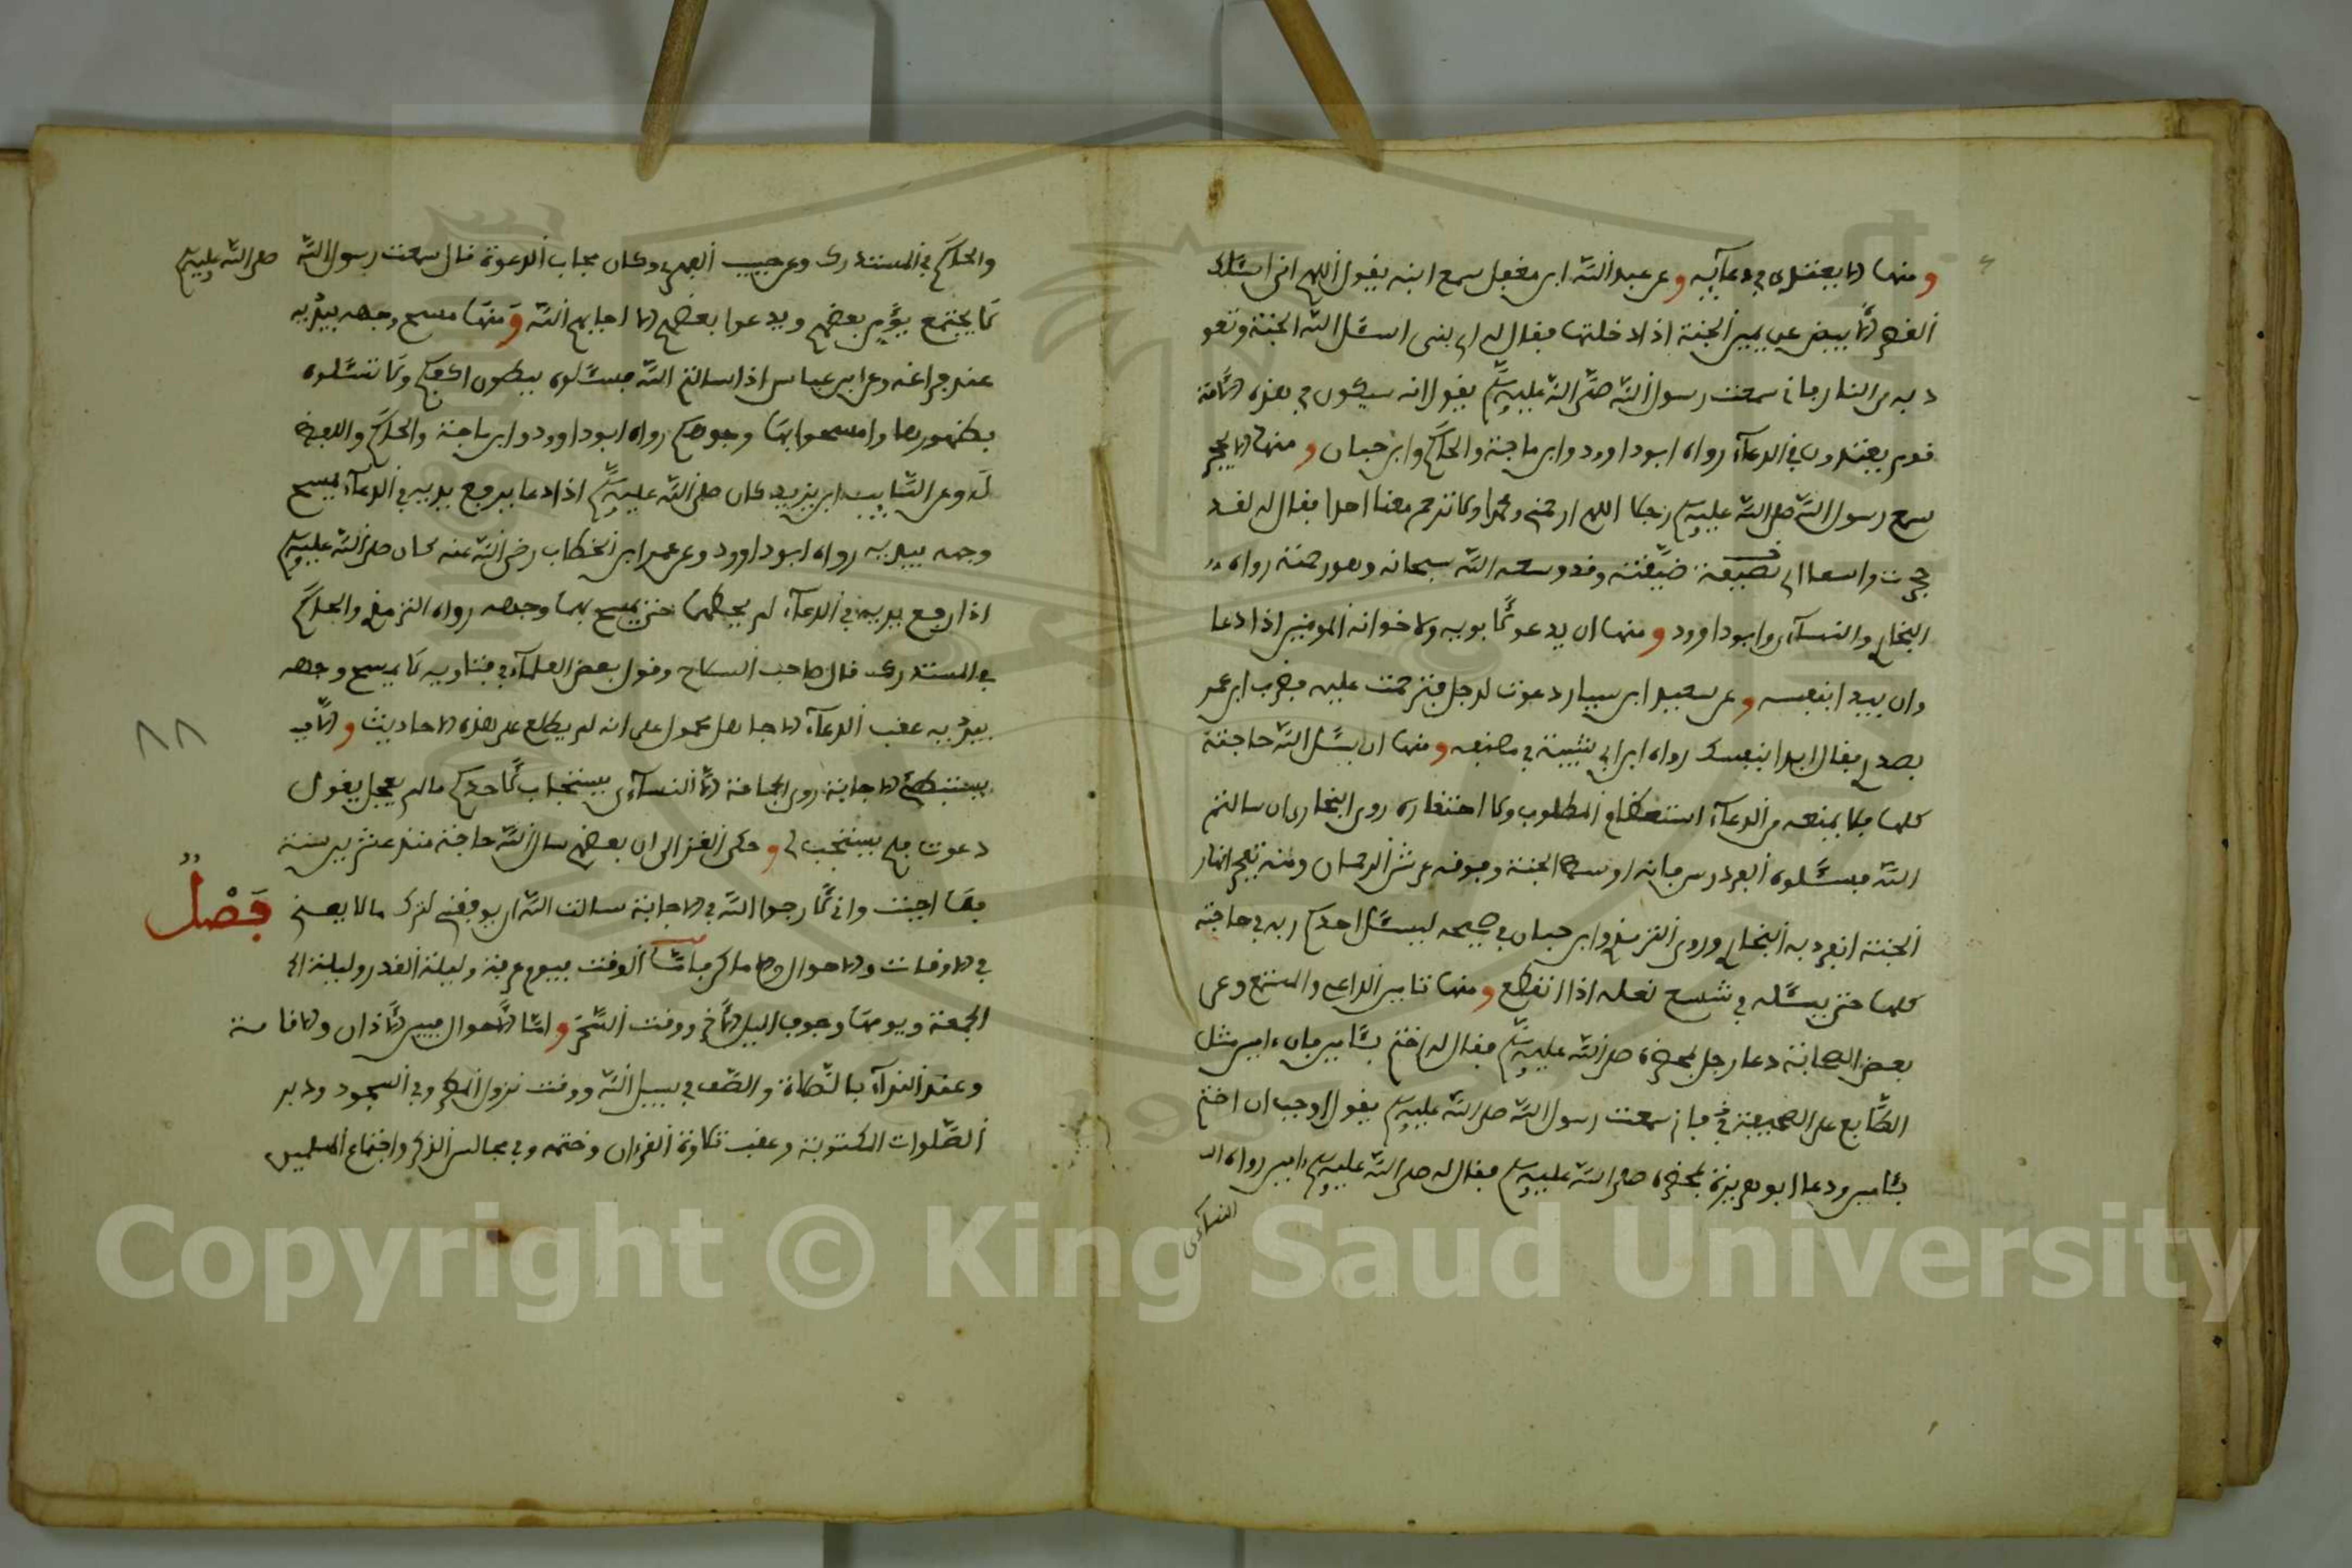 ومنها الا يعتدى في دعايه وعن عبد الله ابن مغفل سمع ابنه يقول اللهم انى اسئلك
القصر الابيض عن يمين الجنة اذا دخلتها فقال له اى بنى اسئل الله الجنة وتعو
ذ به من النار فانى سمعت رسول الله صلى الله عليه وسلم يقول انه سيكون في هذه الامة
قوم يعتدون في الدعاء رواه ابو داوود وابن ماجة والحاكم وابن حبان ومنها الا يحجر
سمع رسول الله صلى الله عليه وسلم رجلا اللهم ارحمنى ومحمدا ولا ترحم معنا احدا فقال له لقد
حجرت واسعا اى ضيقته وقد وسعه الله سبحانه وهو رحمته رواه
البخارى والنسآءى وابو داوود ومنها ان يدعو لأبويه ولاخوانه المومنين اذا دعا
وان يبدا بنفسه وعن سعيد ابن يسار دعوت لرجل فترحمت عليه فضرب ابن عمر
بصدرى فقال ابدا بنفسك رواه ابن ابى شيبة في مصنفه ومنها ان يسئل الله حاجته
كلها فلا يمنعه من الدعاء استعظام المطلوب ولا احتقاره روى البخارى ان سالتم
الله فسئلوه الفردوس فانه اوسط الجنة وفوقه عرش الرحمان ومنه تفجر انهار
الجنة انفرد به البخارى وروى الترمذى وابن حبان في صحيحه ليسئل احدكم ربه في حاجته
كلها حتى يسئله في شسع نعله اذا انقطع ومنها تامين الداعى والمستمع وعن
بعض الصحابة دعا رجل بحضرة صلى الله عليه وسلم فقال له اختم بئامين فان ءامين مثل
الطابع على الصحيفة فانى سمعت رسول الله صلى الله عليه وسلم يقول اوجب ان اختم
بئامين ودعا ابو هريرة بحضرة صلى الله عليه وسلم فقال له صلى الله عليه وسلم ءامين رواه
النسآءى
والحاكم في المستدرك وعن حبيب الفهرى وكان مجاب الدعوة قال سمعت رسول الله صلى الله عليه وسلم
لا يجتمع يؤمن بعضهم ويدعوا بعضهم الا اجابهم الله ومنها مسح وجهه بيديه
عند فراغه وعن ابن عباس اذا سالتم الله فسئلوه ببطون اكفكم ولا تسئلوه
بظهورها وامسحوا بها وجوهكم رواه ابو داوود وابن ماجة والحاكم واللفظ
له وعن السايب ابن يزيد كان صلى الله عليه وسلم اذا دعا يرفع يديه في الدعاء يمسح
وجهه بيديه رواه ابو داوود وعن عمر ابن الخطاب رضى الله عنه كان صلى الله عليه وسلم
اذا رفع يديه في الدعاء لم يحطهما حتى يمسح بهما وجهه رواه الترمذى والحاكم
في المستدرك قال صاحب السلاح وقول بعض العلمآء في فتاويه لا يمسح وجهه
بيديه عقب الدعاء الا جاهل محمول على انه لم يطلع على هذه الاحاديث والا
يستبطئ الاجابة روى الجماعة الا النسآءى يستجاب لأحدكم ما لم يعجل يقول
دعوت فلم يستجب لى وحكى الغزالى ان بعضهم سال الله حاجة منذ عشرين سنة
فما اجبت وانى لأرجوا الله في الاجابة سالت الله ان يوفقنى لترك ما لا يعنى فصل
في الاوقات والاحوال والاماكن فاما الوقت فيوم عرفة وليلة القدر وليلة
الجمعة ويومها وجوف الليل الأخر ووقت السحر واما الأحوال فبين الأذان والاقامة
وعند الندآء بالصلاة والصف في سبيل الله ووقت نزول المطر وفي السجود ودبر
الصلوات المكتوبة وعقب تلاوة القرءان وختمه وفي مجالس الذكر واجتماع المسلمين
٨٨
Copyright © King Saud University